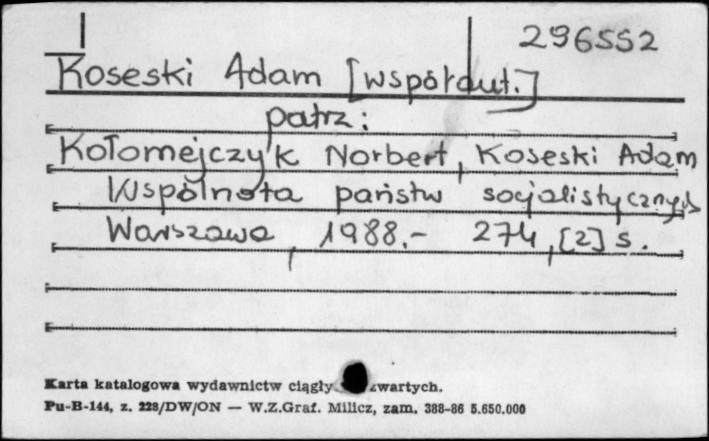 296552
Koseski Adam [współaut.]
patrz:
Kołomejczyk Norbert, Koseski Adam
Wspólnota państw socjalistycznych
Warszawa, 1988.- 274, [2] s.
Karta katalogowa wydawnictw ciągły zwartych.
Pu-B-144, z. 228/DW/ON — W.Z.Graf. Milicz, zam. 388-86 5.650.000